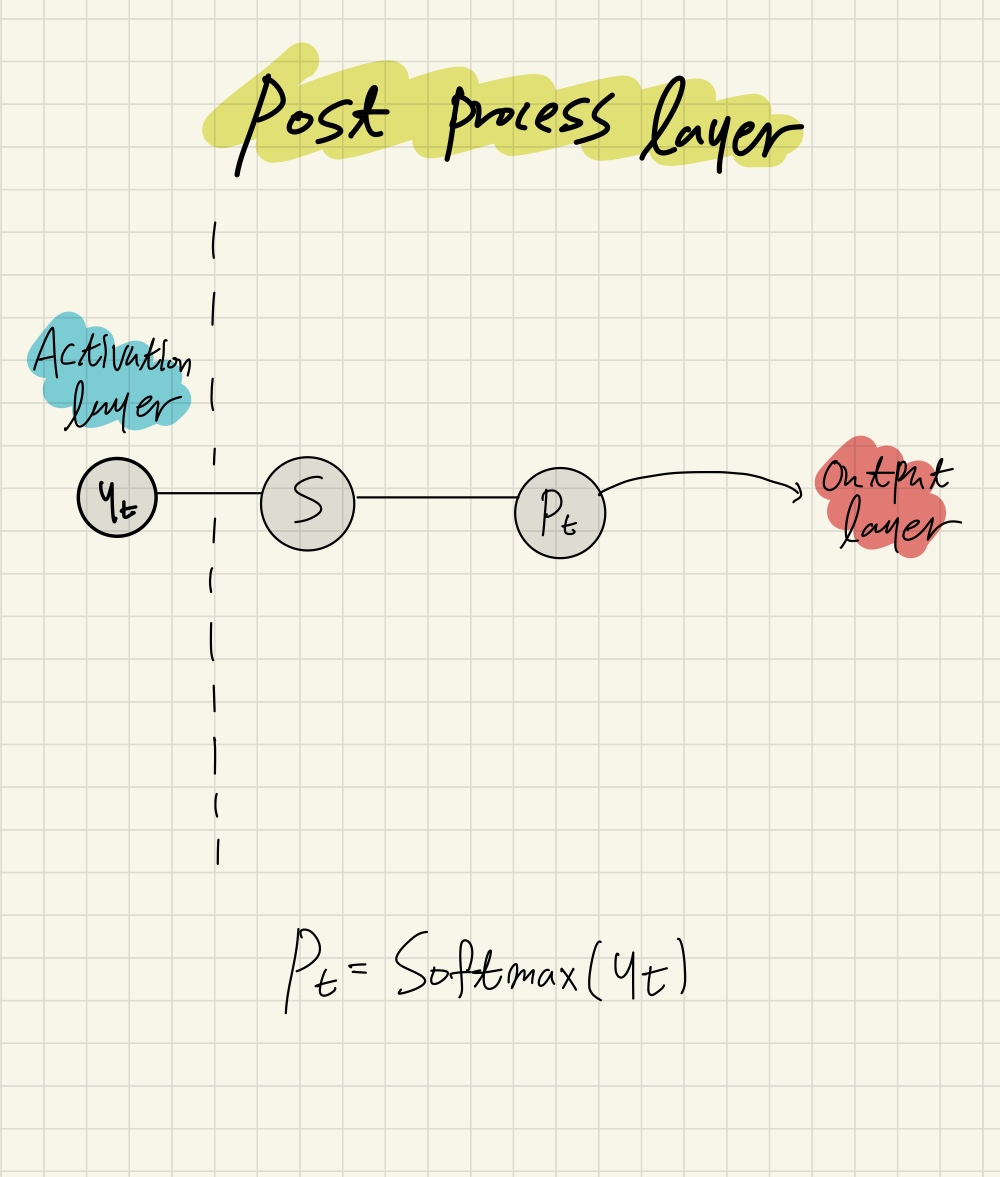 Post process layer
Activation
layer
y_t
S
P_t
Output
layer
P_t = Softmax(y_t)